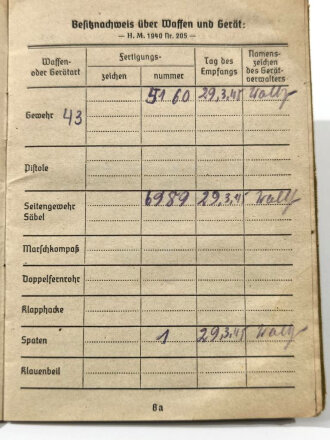 Besitznachweis über Waffen und Gerät:
— H. M. 1940 Nr. 205 —
Waffen- oder Gerätart Fertigungs- zeichen nummer Tag des Empfangs Namens- zeichen des Gerät- verwalters
Gewehr 43 5160 29.3.45
Pistole
Seitengewehr 6989 29.3.45
Säbel
Marschkompaß
Doppelfernrohr
Klapphacke
Spaten 1 29.3.45
Klauenbeil
8a